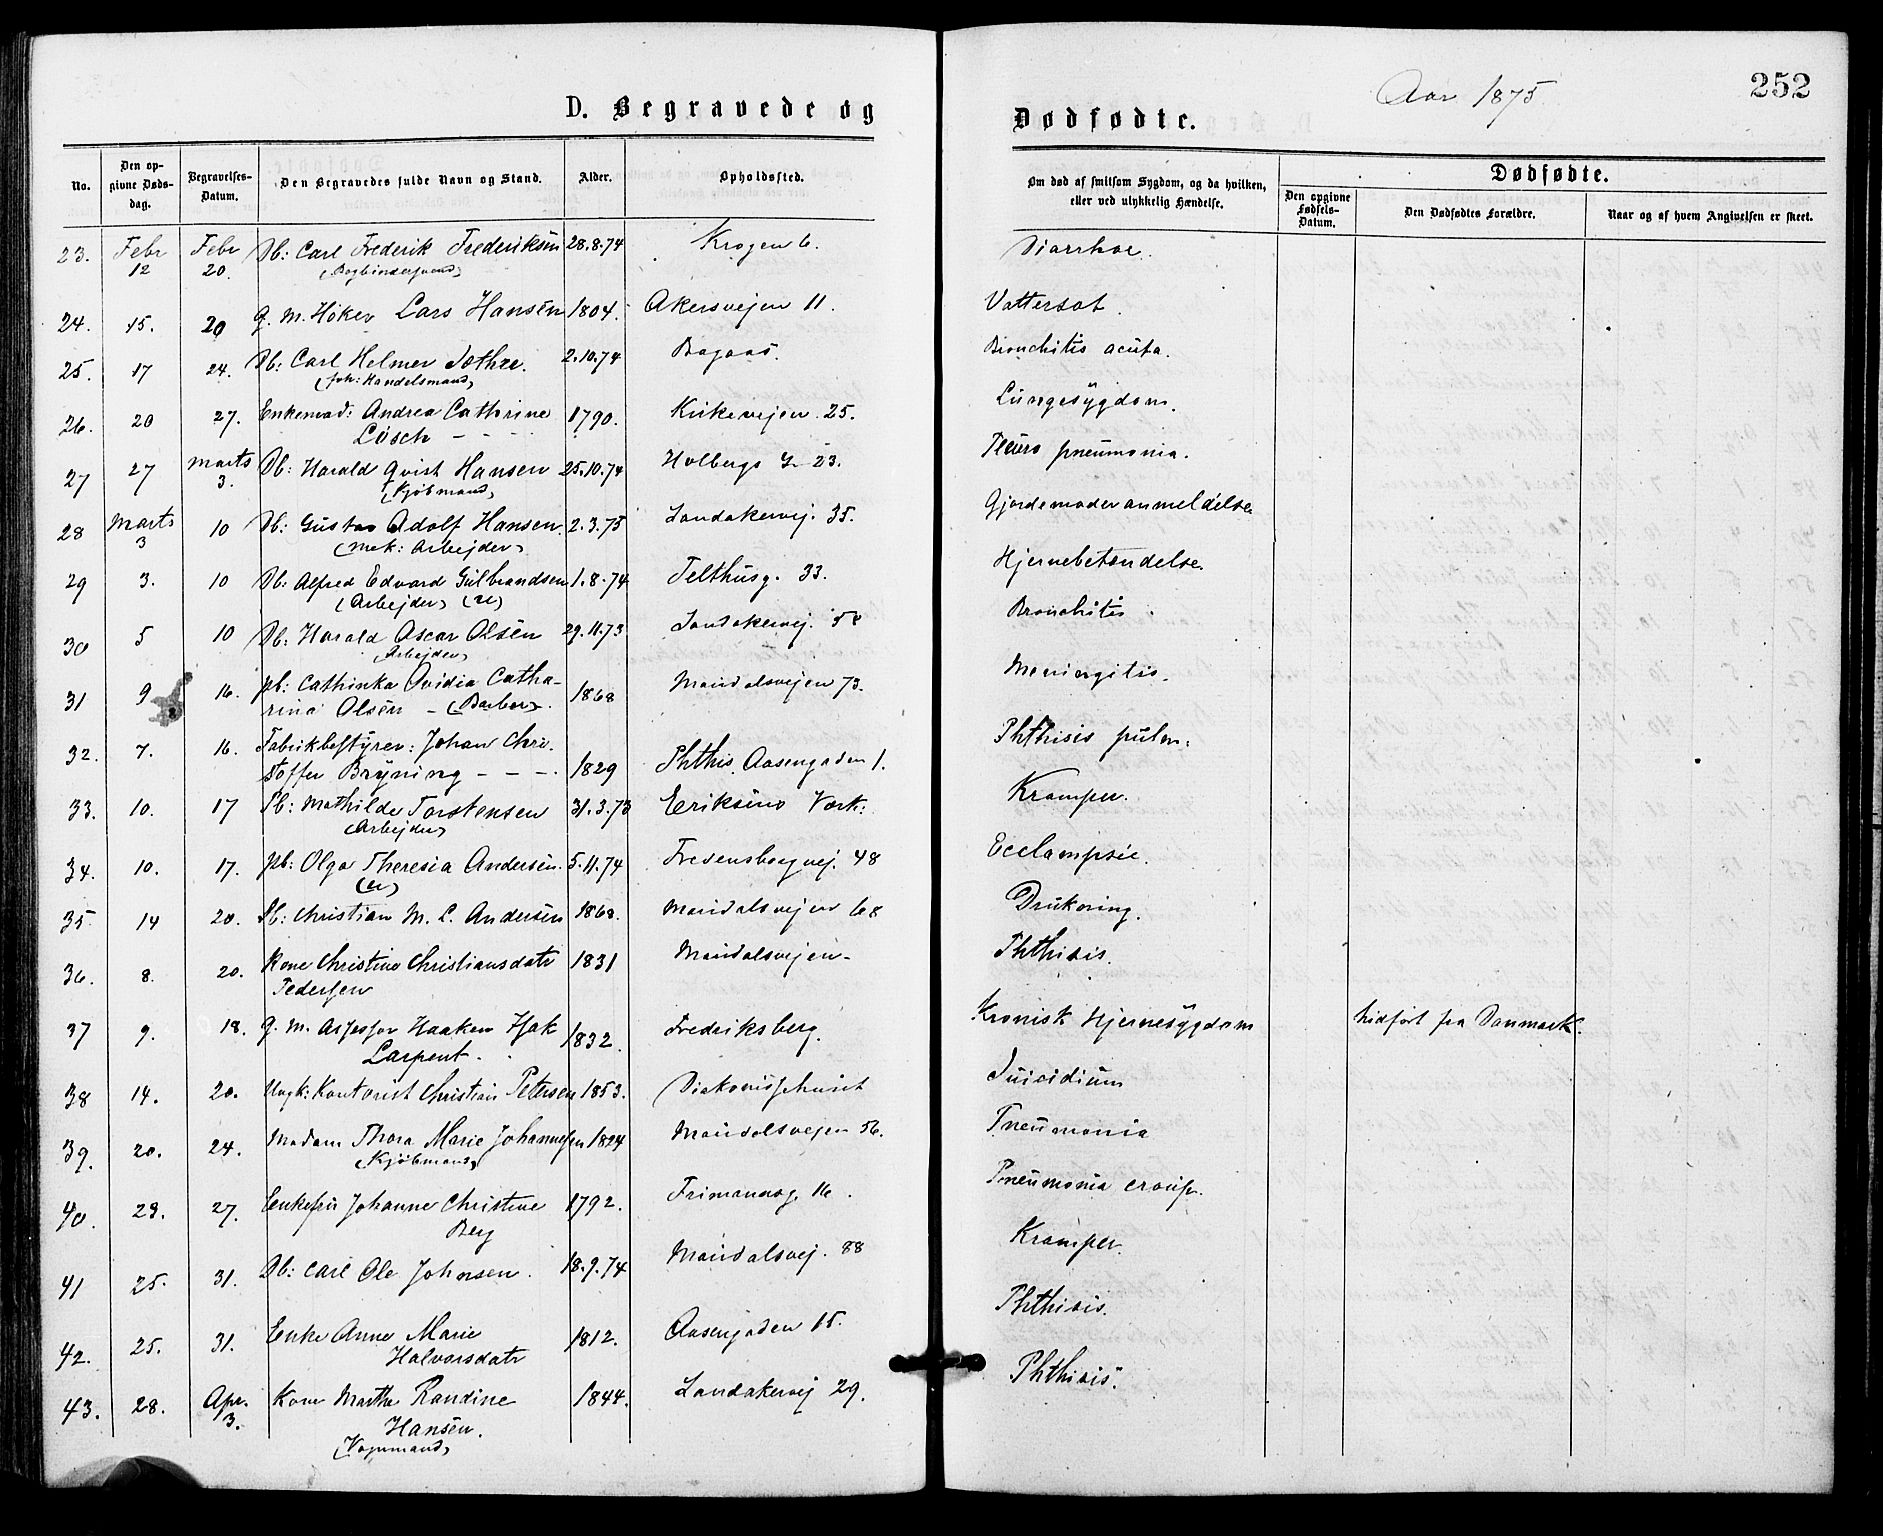 D. Begravede og
Dødfødte.
Aar 1875
252
No.
Den opgivne Dødsdag.
Begravelses-Datum.
Den Begravedes fulde Navn og Stand.
Alder.
Opholdssted.
Om død af smitsom Sygdom, og da hvilken, eller ved ulykkelig Hændelse.
Dødfødte.
Den opgivne Fødsels-Datum.
Den Dødfødtes Forældre.
Naar og af hvem Angivelsen er skeet.
23. Febr 12 Febr 20. Db: Carl Frederik Frederiksen 28.8.74 Krogen 6. Diarrhoe.
24. 15. 20 g. M. Høker Lars Hansen 1804. Akersvejen 11. Vattersot.
25. 17 24. Db: Carl Helmer 2.10.74 Bagaas. Bronchitis acuta.
(Handelsmand)
26. 20 27. Enkemad: Andrea Cathrine 1790. Kirkevejen 25. Lungesygdom.
Lösch - - -
27 27 Marts 3. Db: Harald Qvist Hansen 25.10.74 Holbergs G 23. Pleuro pneumonia.
(Kjøbmand)
28 Marts 3 10 Db: Gustav Adolf Hansen 2.3.75 Sandakervej. 35. Gjordemoderanmeldelse
(mek: Arbejder)
29 3. 10 Db: Alfred Edvard Gulbrandsen 1.8.74 Telthusg. 33. Hjernebetændelse.
(Arbejder) (u)
30 5 10 Db: Harald Oscar Olsen 29.11.73 Sandakervej. 58 Bronchitis
(Arbejder)
31 9 16. Pb: Cathinka Ovidia Catha- 1868 Maridalsvejen 73. Meningitis.
rina Olsen - (Barber).
32. 7. 16. Fabrikbestyrer: Johan Chri- 1829 Phthis. Aasengaden 1. Phthisis pulm:
stoffer Bryning - - -
33. 10. 17 Pb: Mathilde Torstensen 31.3.73 Eriksens Værk: Kramper.
(Arbejder)
34. 10. 17. Pb: Olga Theresia Andersen. 5.11.74 Fredensborgvej. 48 Ecclampsie.
(u)
35 14 20. Db: Christian M. L. Andersen 1868. Maridalsvejen 68 Drukning.
36. 8. 20. Kone Christine Christiansdatr 1831 Maridalsvejen - Phthisis.
Pedersen
37 9. 18. g. m. Assessor Haaken Isak 1832. Fredriksberg. Kronisk Hjernesygdom hidført fra Danmark.
Larpent.
38 14. 20. Ungk: Kontorist Christian Petersen 1853. Diakonissehuset Suicidium
39. 20. 24. Madam Thora Marie Johannesen 1824 Maridalsvejen 56. Pneumonia
(Kjøbmand)
40. 23. 27. Enkefru Johanne Christine 1792. Frimannsg. 16. Pneumonia croup.
Berg
41 25. 31. Db: Carl Ole Johnsen. 18.9.74 Maridalsvej. 88 Kramper.
42. 25. 31. Enke Anne Marie 1812. Aasengaden 15. Phthisis.
Halvorsdatr
43. 28. Apr. 3. Kone Marthe Randine 1844. Sandakervej 29. Phthisis.
Hansen.
(Vognmand)